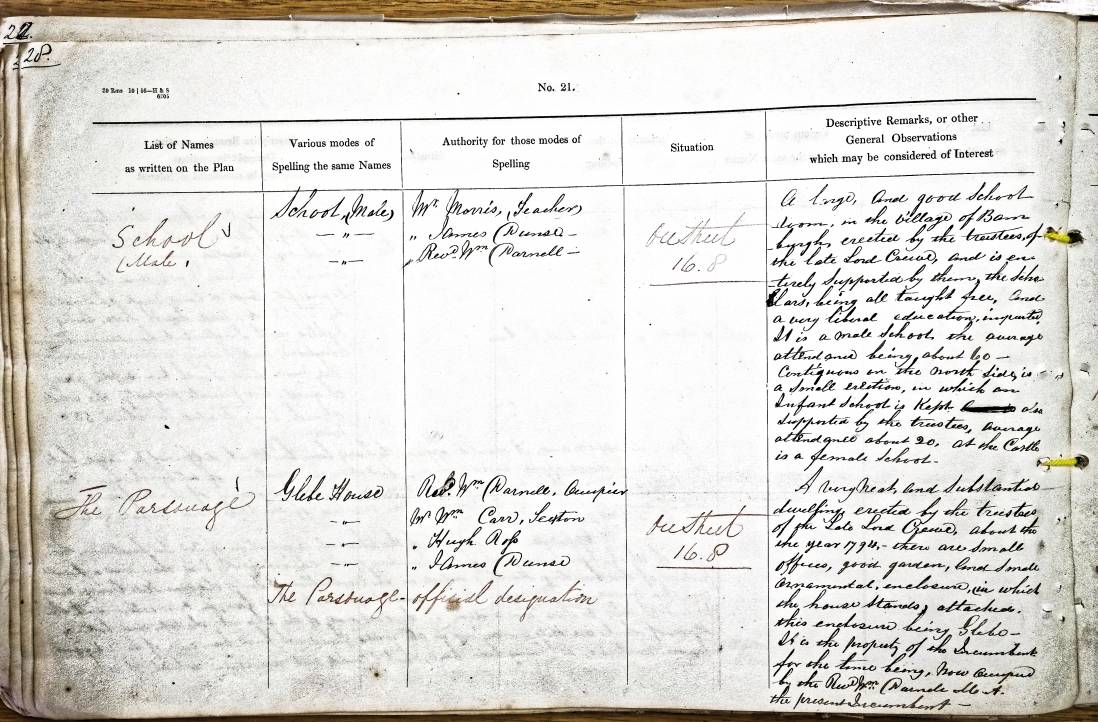 22.
28.
20 Rms 10 | 56—H & S
6705
No. 21.
List of Names
as written on the Plan
Various modes of
Spelling the same Names
Authority for those modes of
Spelling
Situation
Descriptive Remarks, or other
General Observations
which may be considered of Interest
School
(Male,
School (Male)
— " —
— " —
Mr. Morris, (Teacher)
" James
" Revd. Wm.
On Sheet
16.8
A large, and good School
room, in the village of Bam
-burgh, erected by the trustees, of
the late Lord Crewe, and is en
-tirely supported by them, the Scho
lars, being all taught free, and
a very liberal education, imparted
It is a male School, the average
attendance being, about 60 —
Contiguous on the north side, is
a small erection, in which an
Infant School is Kept also
supported by the trustees, average
attendance about 20, at the Castle
is a female School -
The Parsonage
Glebe House
— " —
— " —
— " —
The Parsonage -
Revd. Wm. Darnell, Occupier
Mr. Wm. Carr, Sexton
" Hugh Ross
" James
official designation
On Sheet
16.8
A very neat, and Substantial
dwelling, erected by the trustees
of the Late Lord Crewe, about the
the year 1794, - there are Small
offices, good garden, and Small
ornamental, enclosure, in which
the house Stands, attached.
this enclosure being Glebe -
It is the property of the Incumbent
for the time being, now occupied
by the Revd. Wm. M. A.
the present Incumbent —